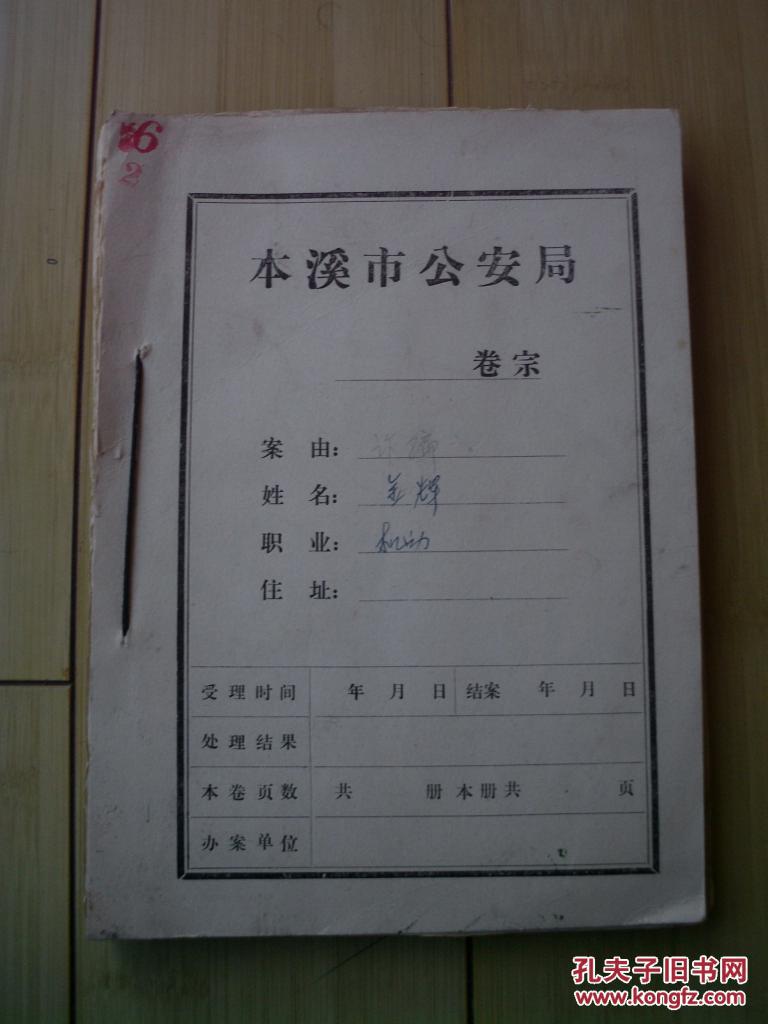 6
2
本溪市公安局
卷宗
案 由:
姓 名: 金辉
职 业: 机动
住 址:
受理时间 年 月 日 结案 年 月 日
处理结果
本卷页数 共 册 本册共 页
办案单位
孔夫子旧书网
www.kongfz.com